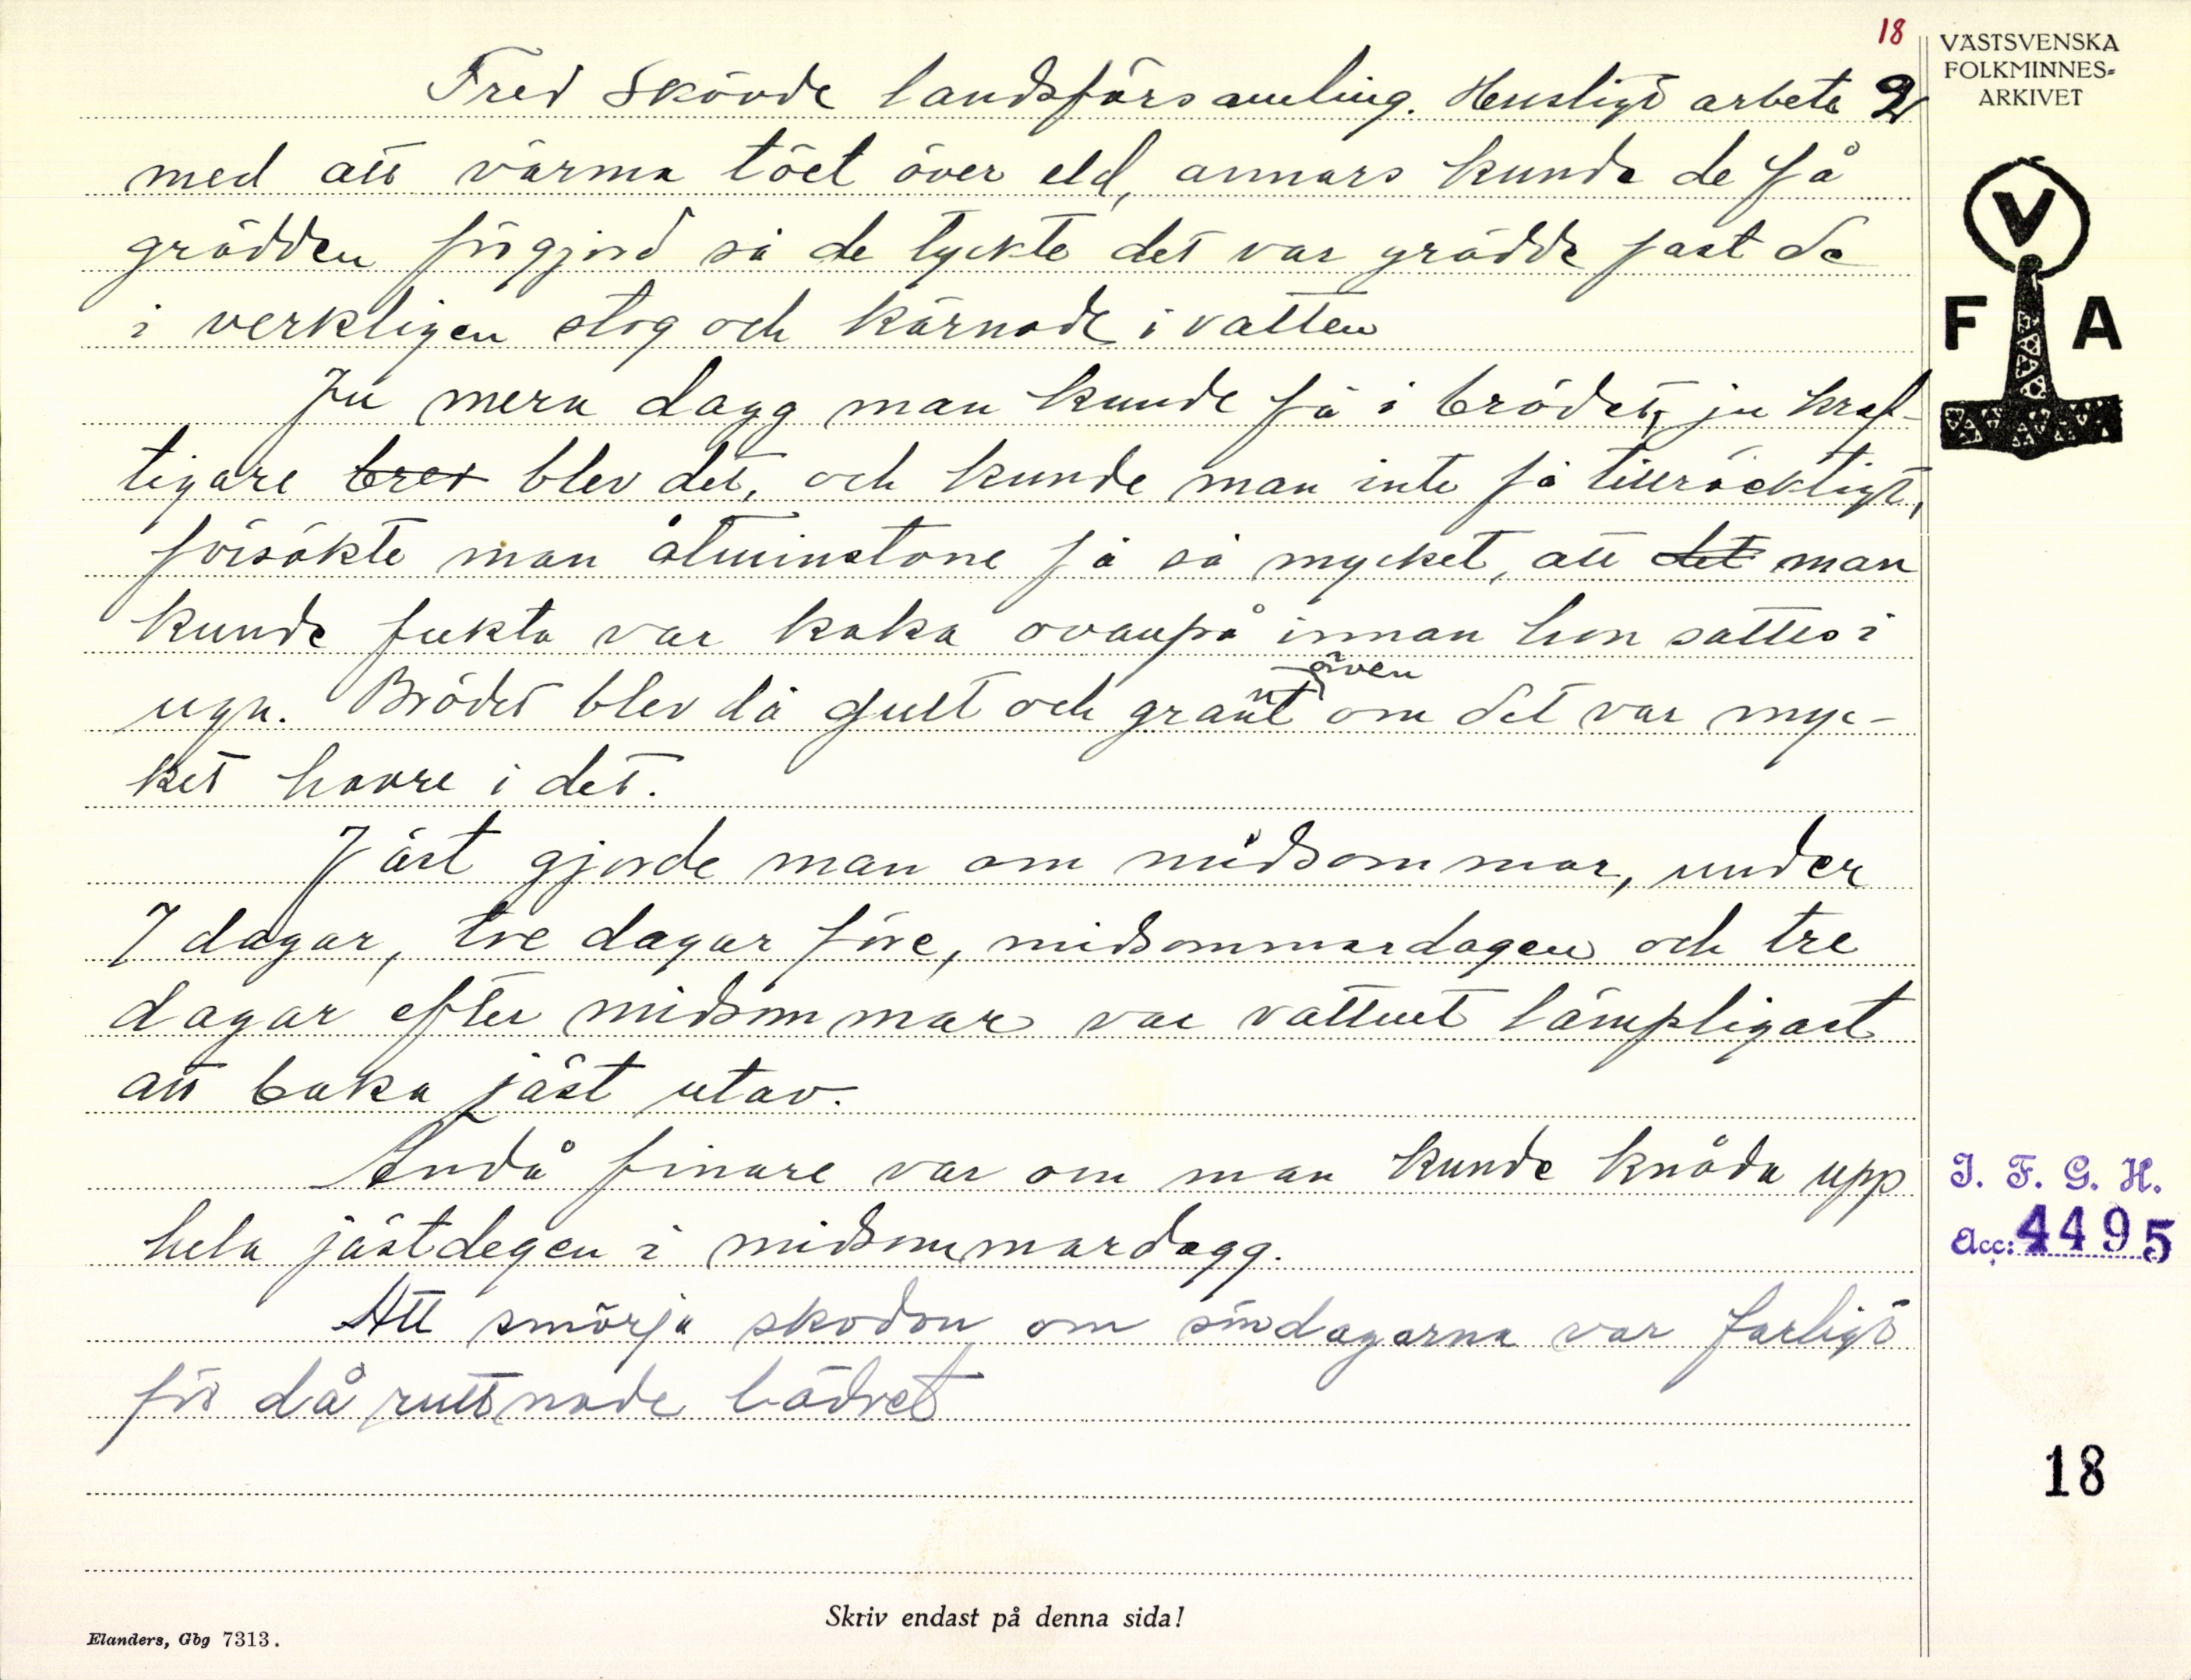 18
Fred Skövde landsförsamling. Husligt arbete 2
med att värma töet över eld, annars kunde de få
grädden förgjord så de tyckte det var grädde fast de
i verkligen stog och kärnade i vatten
Ju mera dagg man kunde få i brödet, ju kraf-
tigare bret blev det, och kunde man inte få tillräckligt,
försökte man åtminstone få så mycket, att det man
kunde fukta var kaka ovanpå innan hon sattes i
ugn. Brödet blev då gult och grant även om det var myc-
ket havre i det.
Jäst gjorde man om midsommar, under
7 dagar, tre dagar före, midsommardagen och tre
dagar efter midsommar var vattnet lämpligast
att baka jäst utav.
Ändå finare var om man kunde knåda upp
hela jästdegen i midsommardagg.
Att smörja skodon om söndagarna var farligt
för då ruttnade lädret
Skriv endast på denna sida!
Elanders, Gbg 7313.
VÄSTSVENSKA
FOLKMINNES-
ARKIVET
V
F A
I. F. G. H.
Acc: 4495
18